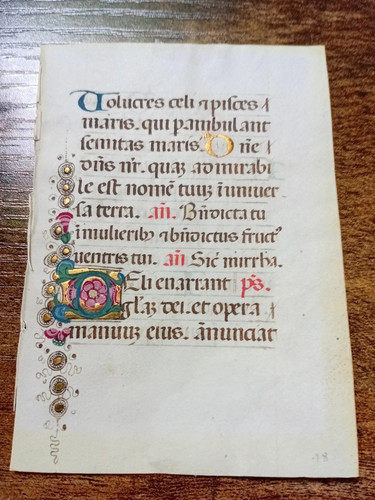 Uolucres celi ⁊ pisces
maris. qui pambulant
semitas maris. Dn̄e
dn̄s nr̄. quaz admirabi
le est nomē tuuz ī uniuer
sa terra. añ. Bn̄dicta tu
ī mulierib⁊ ⁊ bn̄dictus fruct⁹
uentris tui. añ Sic̄ mirrha.
Celi enarrant p̄s.
gl̄az dei. et opera
manuuz eius. ānunciat
18